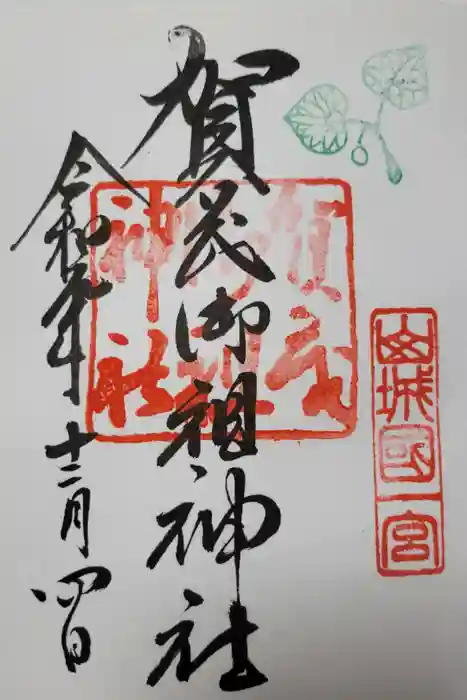 山城國一宮
賀茂御祖神社
賀茂御祖神社
令和元年十二月四日